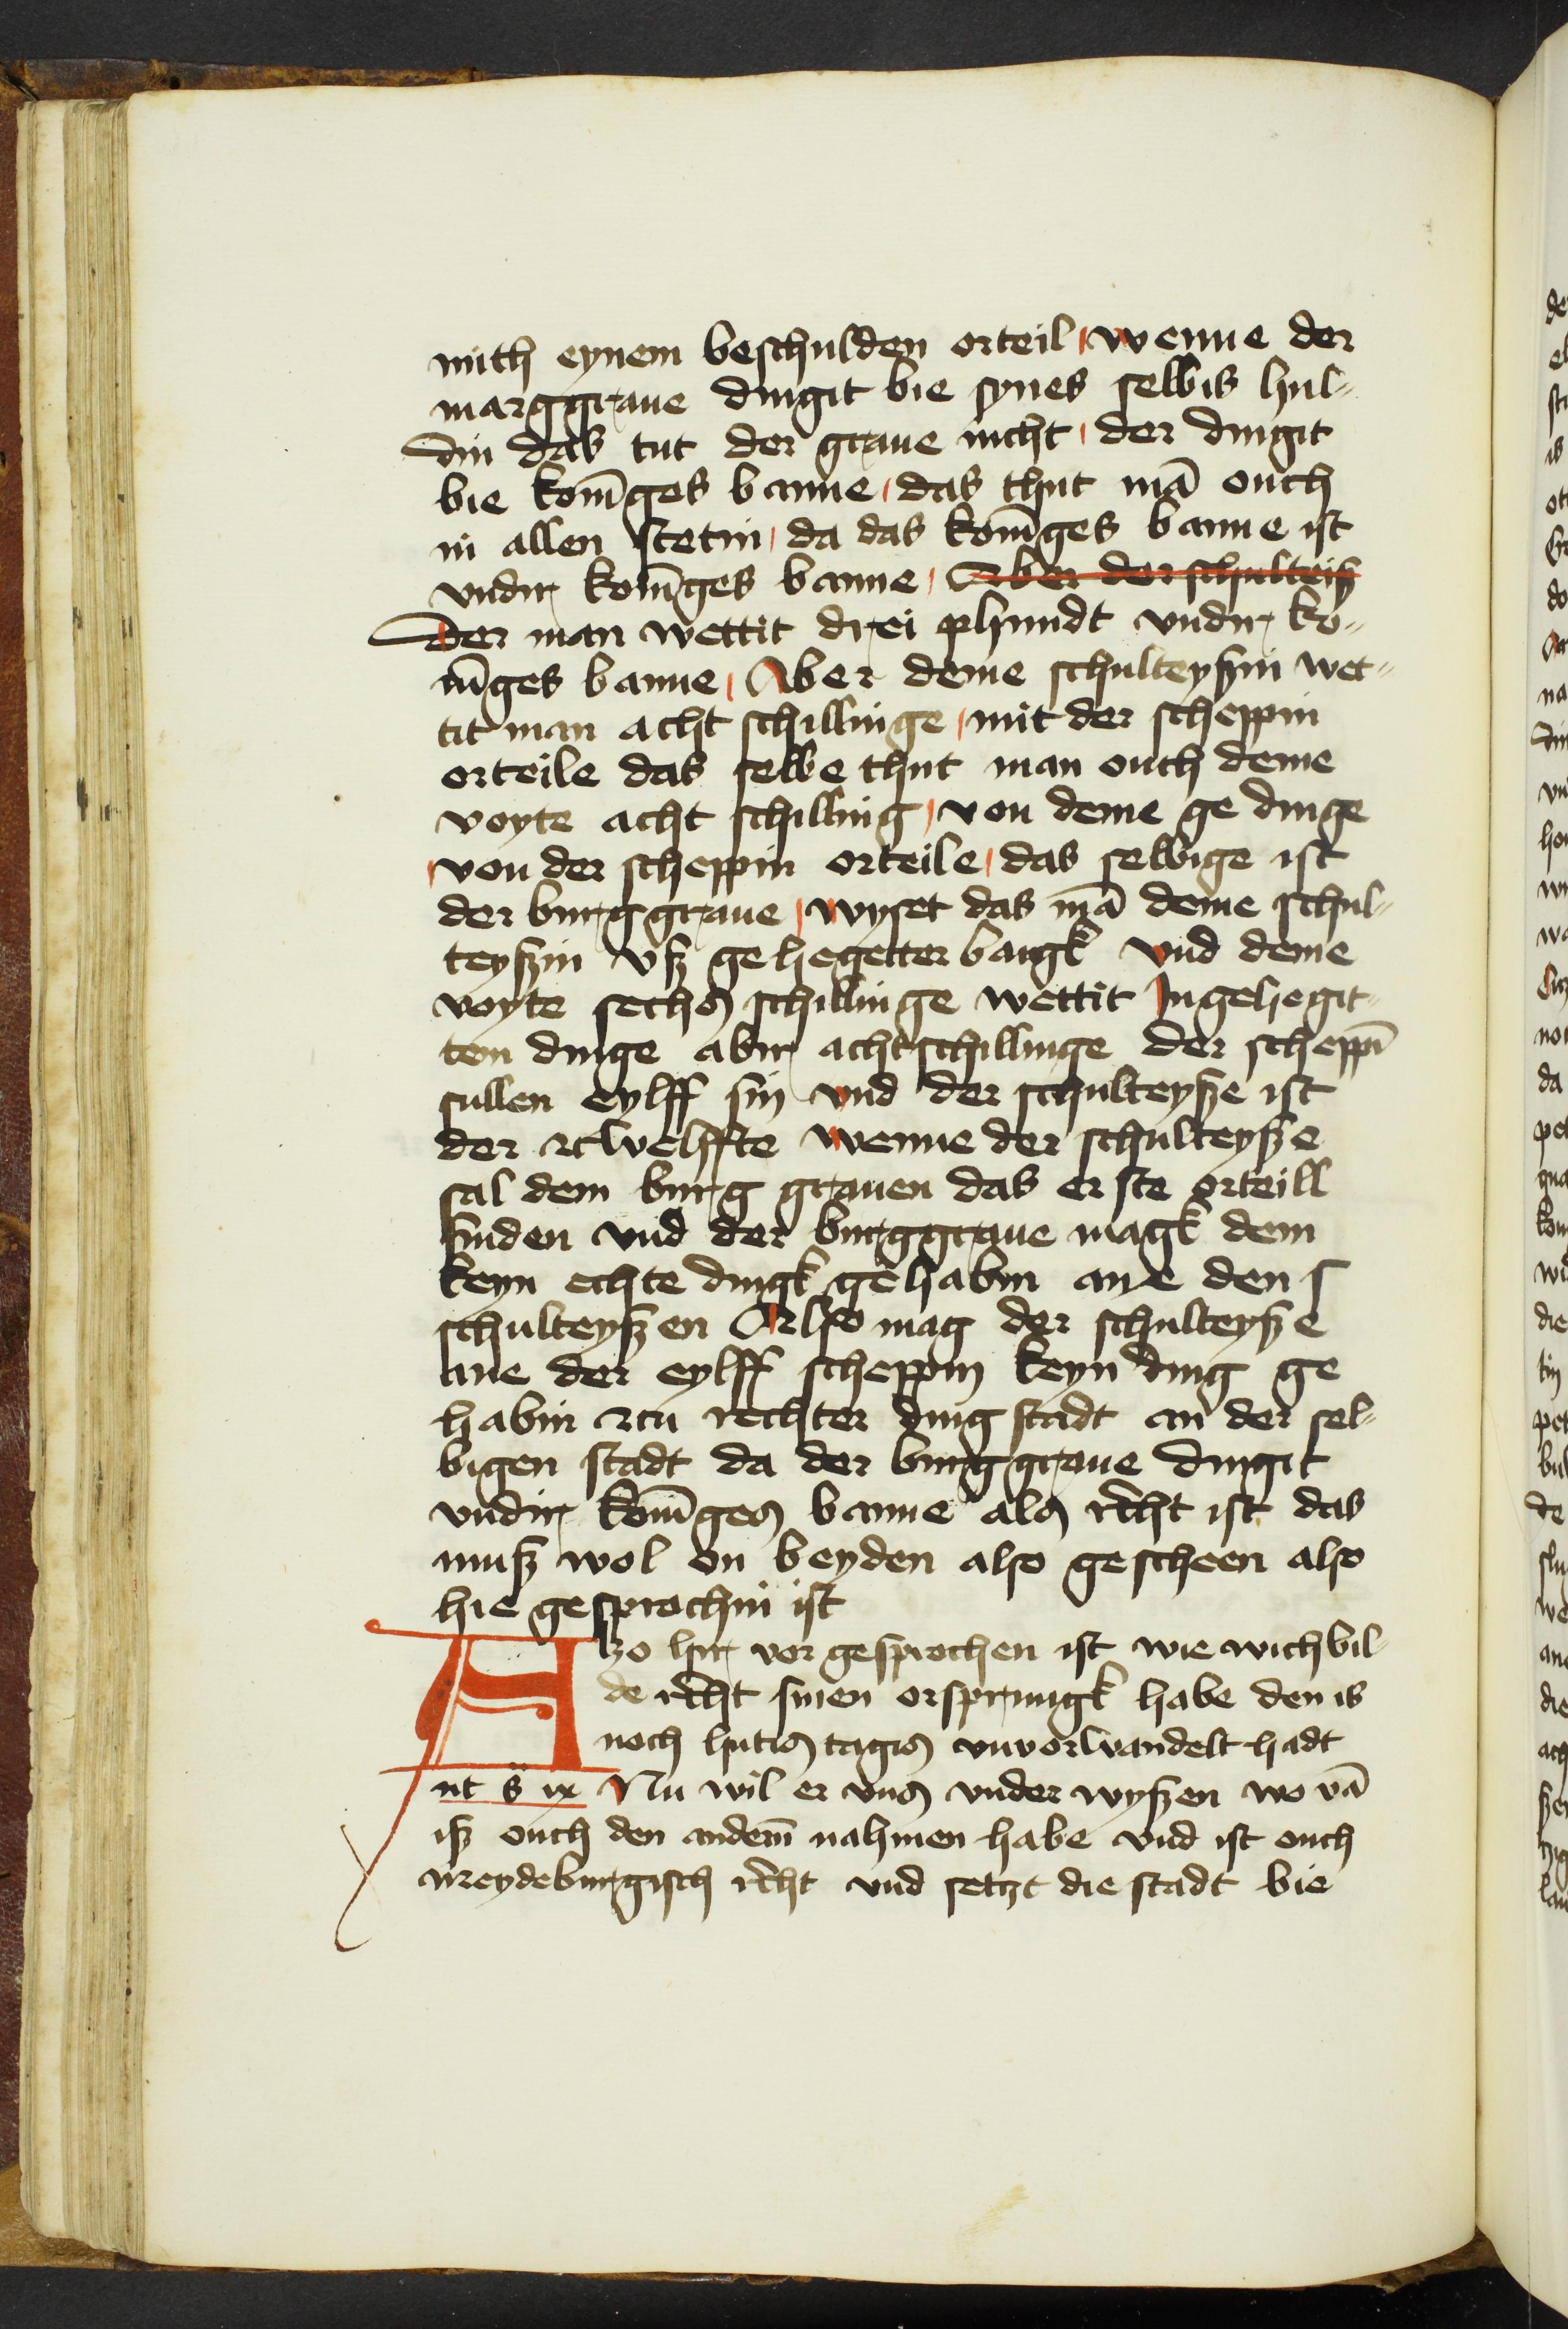 mith eynem beschulden orteil wenne der
marggraue dingit bie synes selbis hul¬
din das tut der graue nicht der dingit
bie kom̄ges banne das thut mā ouch
in allen stetin da das kom̄ges banne ist
vndir kom̄ges banne Aber der schulteisz
Der man wettit drei phundt vndir ko¬
nīges banne Aber deme schulteyszin wet¬
tit man acht schillinge mit der scheppin
orteile das selbe thut man ouch deme
voyte acht schilling von deme ge dinge
von der scheppin orteile das selbige ist
der burggraue wyset das mā deme schul¬
teyszin vsz gehegetter bangk vnd deme
voyte sechs schillinge wettit In gehegit¬
ten dinge abir acht schillinge der scheppī
sullen eylff sin vnd der schulteysze ist
der zcwelffte wenne der schulteysze
sal dem burg grauen das erste orteill
finden vnd der burggraue magk dem
keyn echte dingk gehabin ane den s
schulteyszen Also mag der schulteysze
ane der eylff scheppin keyn ding ge
habin zcu rechter ding stadt an der sel¬
bigen stadt da der burggraue dingit
vndir kom̄ges banne als recht ist das
musz wol on beyden also gescheen also
hie gesprochin ist
Alzo hir vor gesprochen ist wie wichbil¬
de recht sinen orsprungk habe den is
noch hutis tagis vnvorwandelt hadt
ut s̄ ix Nu wil er vns vnder wyszen wo vā
isz ouch den andern̄ nahmen habe vnd ist ouch
meydeburgisch recht vnd setzt die stadt bie